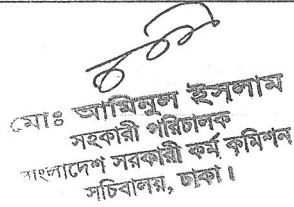 মোঃ আমিনুল ইসলাম
সহকারী পরিচালক
বাংলাদেশ সরকারী কর্ম কমিশন
সচিবালয়, ঢাকা।